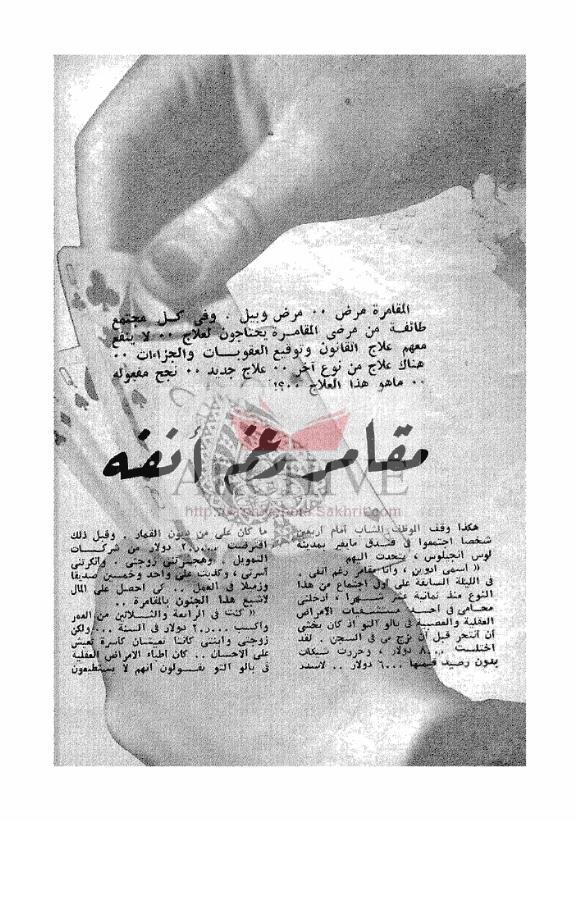 المقامرة مرض ٠٠ مرض وبيل . وفى كل مجتمع
طائفة من مرضى المقامرة يحتاجون لعلاج ٠٠ لا ينفع
معهم علاج القانون وتوقيع العقوبات والجزاءات ٠٠
هناك علاج من نوع آخر ٠٠ علاج جديد ٠٠ نجح مفعوله
٠٠ ماهو هذا العلاج ٠٠؟!
مقامر رغم أنفه
ARCHIVE
هكذا وقف الوقت الشاب أمام أربعين
شخصا اجتمعوا فى فندق مايفر بمدينة
لوس انجيلوس ، يتحدث اليهم
« اسمى ادوين ، وأنا مقامر رغم أنفى .
فى الليلة السابقة على أول اجتماع من هذا
النوع منذ ثمانية عشر شهرا ، أدخلنى
محامى فى احدى مستشفيات الأمراض
العقلية والعصبية فى بالو التو اذ كان يخشى
أن أنتحر قبل أن يزج بى فى السجن . لقد
اختلست ٨٠٠٠ دولار ، وحررت شيكات
بدون رصيد قيمتها ٦٠٠٠ دولار .. لأسدد
ما كان على من ديون القمار . وقبل ذلك
اقترضت ٢٠٫٠٠٠ دولار من شركات
التمويل . وهجرتنى زوجتى . وأنكرتنى
أسرتى ، وكذبت على واحد وخمسين صديقا
وزميلا فى العمل .. كى احصل على المال
لأشبع هذا الجنون بالمقامرة ..
« كنت فى الرابعة والثلاثين من العمر
وأكسب ٢٠٫٠٠٠ دولار فى السنة ... ولكن
زوجتى وابنتى كانتا تعيشان كأسرة تعيش
على الاحسان .. كان أطباء الأمراض العقلية
فى بالو التو يقولون انهم لا يستطيعون